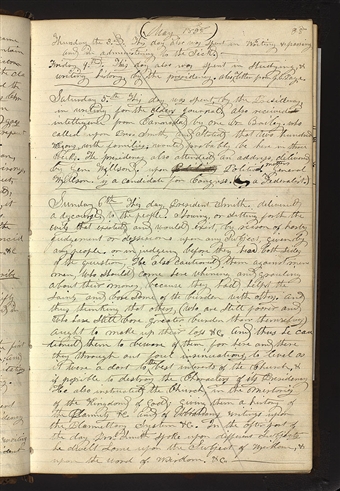 (May 1838)
Thursday the 3rd. This day also was spent in Writing &
and in administering to the Sick.
Friday 4th. This day also was spent in Studying, &
writing history, by the presidency, also letter from
Saturday 5th This day was spent, by the Presidency
in writing for the Elders Journal, also received
intelligence from Cannada, by one Bro Bailey, who
called upon Bro Smith, and Stated, that two hundred
Wagons, with families, would probably be here in three
weeks. The presidency also attended, an address, delivered
by Gen. Willson, upon Political General
Willson is a candidate for Congress. (a Federalist.)
Sunday 6th This day, President Smith delivered
a discourse, to the people. Showing, or setting forth the
evils that existed, and would exist, by reason of hasty
Judgement or dessisions upon any Subject, given by
any people. or in judging before they had both sides
of the question, He also cautioned them against men,
men, who should come here whining and growling
about their money, because they had helped the
Saints and bore some of the burden with others. And
thus thinking that others, (who are still poorer and
who have still bore greater burden than themselves)
aught to make up their loss &c. And thus he cau
tioned them to beware of them for here and there
they through out foul insinuations, to level as
it were a dart to the best interests of the Church, &
if possible to destroy the Characters of its Presidency
He also instructed the Church, in the mistories
of the Kingdom of God; giving them a history of
the Planets &c. and of Abrahams writings upon
the Plannettary System &c. In the after part of
the day Bro. Smith spoke upon different subjects
he dwelt some upon the Subject of Wisdom, &
upon the word of Wisdom. &c.